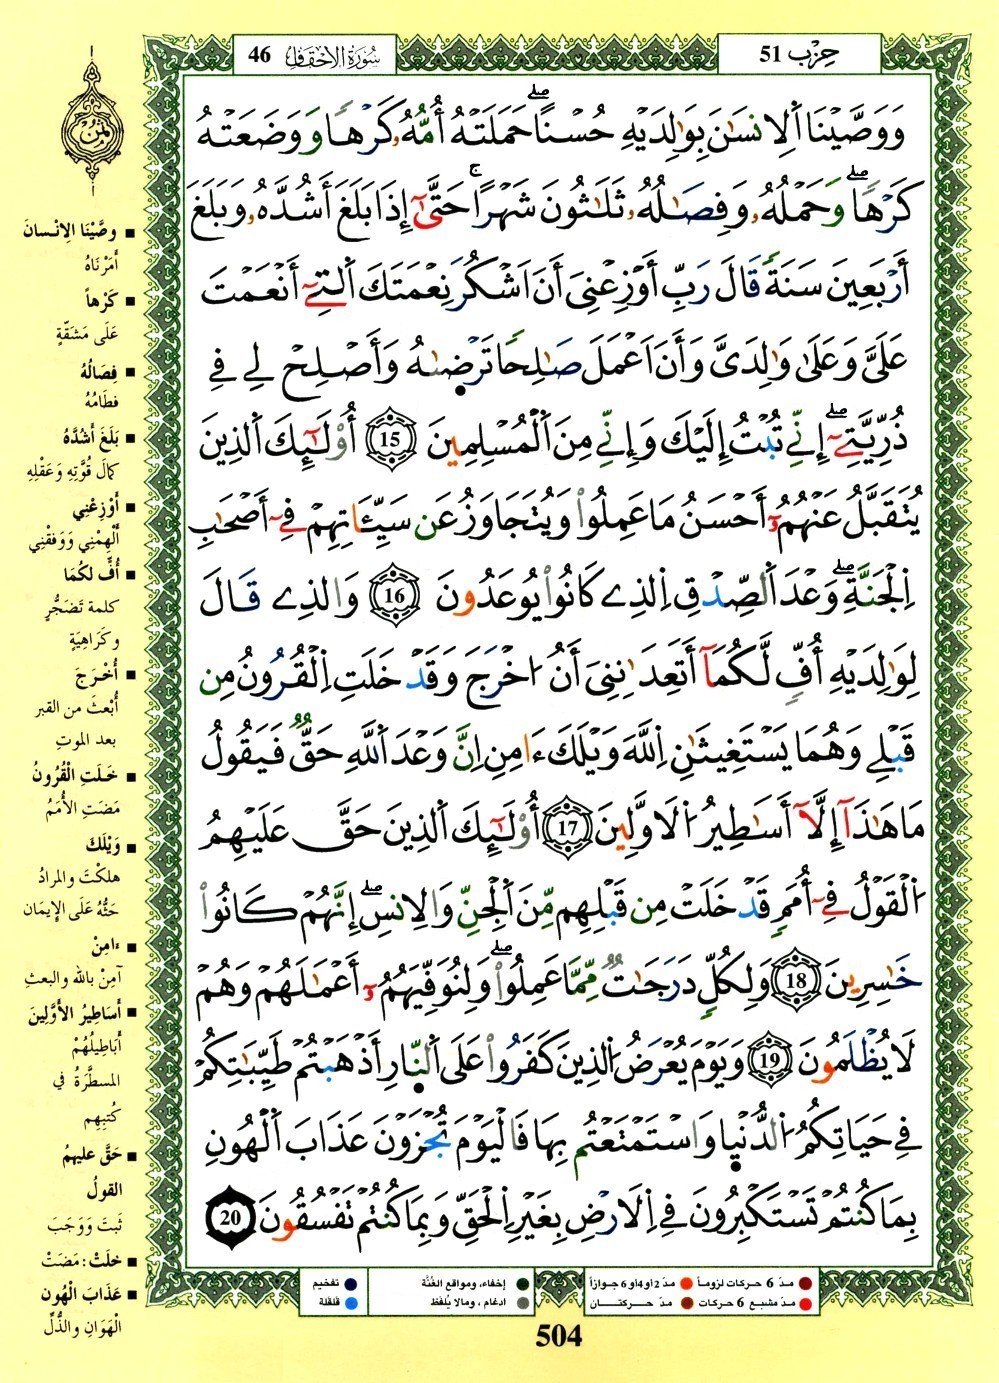 حِزْب 51
سُورَةُ الاَحْقَافِ 46
وَوَصَّيْنَا اَ۬لِانسَٰنَ بِوَٰلِدَيْهِ حُسْناً حَمَلَتْهُ أُمُّهُۥ كَرْهاً وَوَضَعَتْهُ
كَرْهاً وَحَمْلُهُۥ وَفِصَٰلُهُۥ ثَلَٰثُونَ شَهْراً حَتَّىٰٓ إِذَا بَلَغَ أَشُدَّهُۥ وَبَلَغَ
أَرْبَعِينَ سَنَةً قَالَ رَبِّ أَوْزِعْنِىَ أَنَ اَشْكُرَ نِعْمَتَكَ اَ۬لتِےٓ أَنْعَمْتَ
عَلَىَّ وَعَلَىٰ وَٰلِدَىَّ وَأَنَ اَعْمَلَ صَٰلِحاً تَرْضَىٰهُ وَأَصْلِحْ لِے فِے
ذُرِّيَّتِےٓ إِنِّے تُبْتُ إِلَيْكَ وَإِنِّے مِنَ اَ۬لْمُسْلِمِينَ 15 أُوْلَٰٓئِكَ اَ۬لذِينَ
يُتَقَبَّلُ عَنْهُمُۥٓ أَحْسَنُ مَا عَمِلُواْ وَيُتَجَاوَزُ عَن سَيِّـَٔاتِهِمْ فِےٓ أَصْحَٰبِ
اِ۬لْجَنَّةِ وَعْدَ اَ۬لصِّدْقِ اِ۬لذِے كَانُواْ يُوعَدُونَ 16 وَالذِے قَالَ
لِوَٰلِدَيْهِ أُفٍّ لَّكُمَآ أَتَعِدَٰنِنِىَ أَنُ ا۟خْرَجَ وَقَدْ خَلَتِ اِ۬لْقُرُونُ مِن
قَبْلِے وَهُمَا يَسْتَغِيثَٰنِ اِ۬للَّهَ وَيْلَكَ ءَامِنِ اِنَّ وَعْدَ اَ۬للَّهِ حَقٌّ فَيَقُولُ
مَا هَٰذَآ إِلَّآ أَسَٰطِيرُ اُ۬لَاوَّلِينَ 17 أُوْلَٰٓئِكَ اَ۬لذِينَ حَقَّ عَلَيْهِمُ
اُ۬لْقَوْلُ فِےٓ أُمَمٍ قَدْ خَلَتْ مِن قَبْلِهِم مِّنَ اَ۬لْجِنِّ وَالِانسِ إِنَّهُمْ كَانُواْ
خَٰسِرِينَ 18 وَلِكُلٍّ دَرَجَٰتٌ مِّمَّا عَمِلُواْ وَلِنُوَفِّيَهُمُۥٓ أَعْمَٰلَهُمْ وَهُمْ
لَا يُظْلَمُونَ 19 وَيَوْمَ يُعْرَضُ اُ۬لذِينَ كَفَرُواْ عَلَى اَ۬لنَّارِ أَذْهَبْتُمْ طَيِّبَٰتِكُمْ
فِے حَيَاتِكُمُ اُ۬لدُّنْيَا وَاسْتَمْتَعْتُم بِهَا فَالْيَوْمَ تُجْزَوْنَ عَذَابَ اَ۬لْهُونِ
بِمَا كُنتُمْ تَسْتَكْبِرُونَ فِے اِ۬لَارْضِ بِغَيْرِ اِ۬لْحَقِّ وَبِمَا كُنتُمْ تَفْسُقُونَ 20
ثُمُن
■ وَصَّيْنَا الاِنْسانَ
أَمَرْنَاهُ
■ كَرْهاً
عَلَى مَشَقَّةٍ
■ فِصَالُهُ
فطَامُهُ
■ بَلَغَ أَشُدَّهُ
كَمالَ قُوَّتِهِ وَعَقْلِهِ
■ أَوْزِعْنِي
أَلْهِمْنِي وَوَفِّقْنِي
■ أُفٍّ لكُمَا
كلمة تَضَجُّرٍ
وكَرَاهِيَةٍ
■ أُخْرَجَ
أُبْعثَ من القبر
بعد الموتِ
■ خَلَتِ الْقُرُونُ
مَضَتِ الأُمَمُ
■ وَيْلَكَ
هلكْتَ والمرادُ
حَثُّهُ عَلَى الإيمَان
■ ءامِنْ
آمِنْ بالله والبعثِ
■ أَساطِيرُ الأَوَّلِينَ
أَبَاطِيلُهُمْ
المسطَّرَةُ في
كُتبِهِم
■ حَقَّ عليهمُ
القولُ
ثَبَتَ وَوَجَبَ
■ خلَتْ: مَضَتْ
■ عَذَابَ الْهُونِ
الْهَوَانِ والذُّلِّ
مدّ 6 حركات لزوماً
مدّ 2 أو 4 أو 6 جوازاً
إخفاء، ومواقع الغُنَّة
تفخيم
مدّ مشبع 6 حركات
مدّ حركتان
ادغام، ومالا يُلفَظ
قلقلة
504